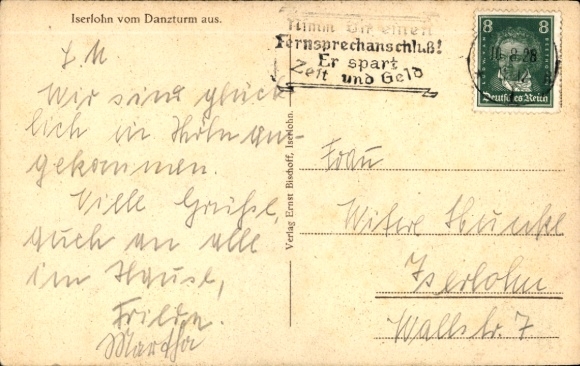 Iserlohn vom Danzturm aus.
Nimm Dir einen
Fernsprechanschluß!
Er spart
Zeit und Geld
8 8
Deutsches Reich
L. M
Wir sind glück
lich in Köln an-
gekommen.
Viele Grüße,
auch an alle
im Hause,
Martha
Verlag Ernst Bischoff, Iserlohn.
Frau
Witwe
Iserlohn
Wallstr. 7